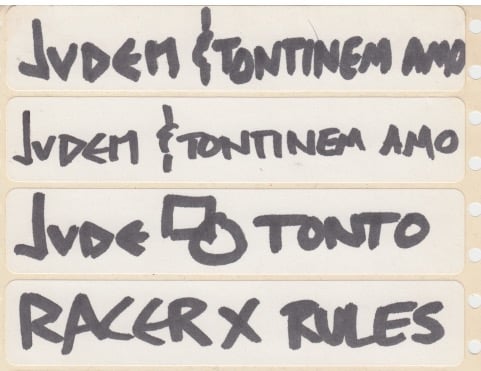 JUDEM & TONTINEM AMO
JUDEM & TONTINEM AMO
JUDE TONTO
RACER X RULES